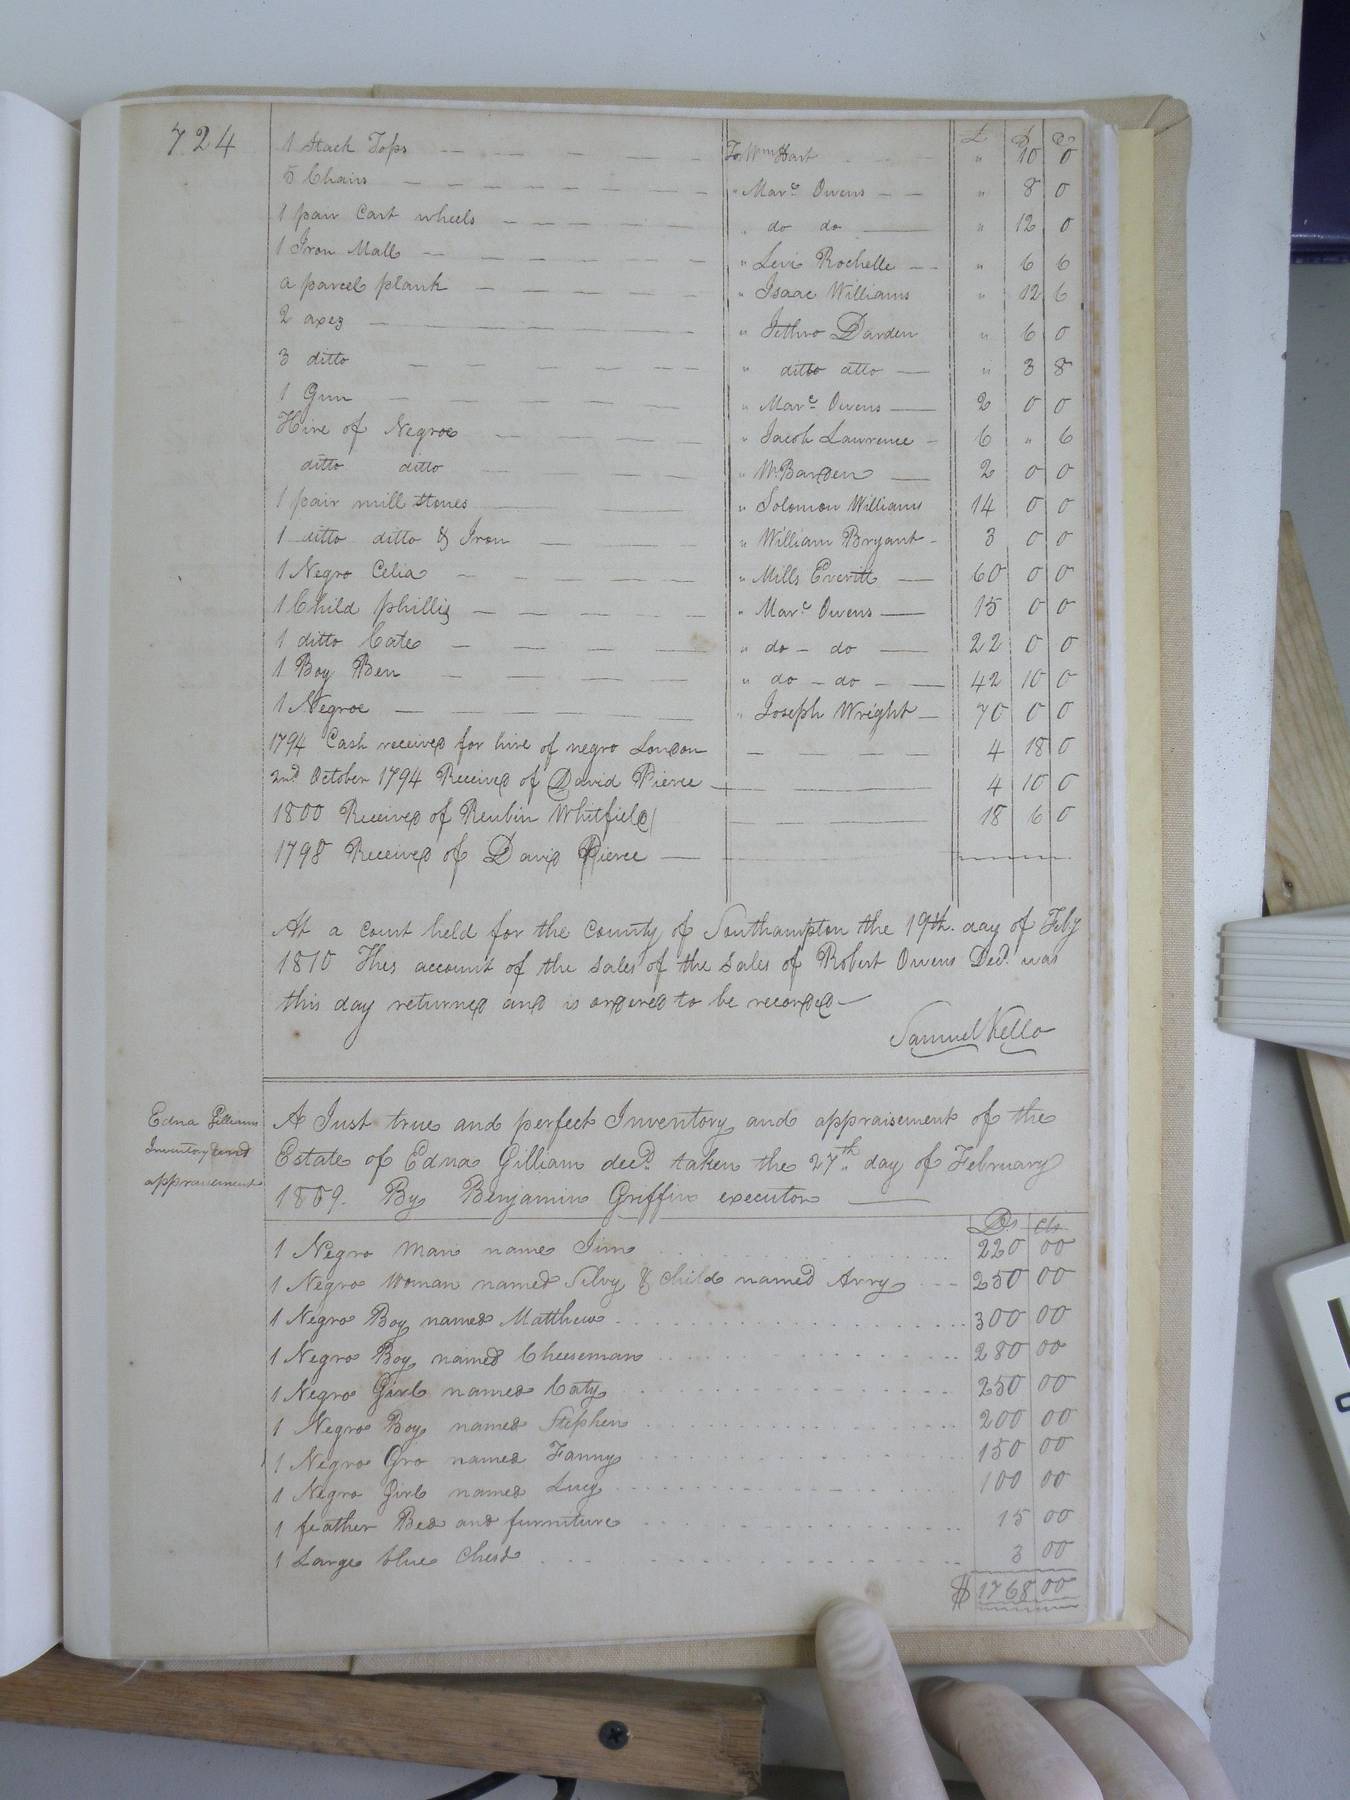 724
£ S D
1 Stack Tops To Wm Hart " 10 0
5 Chairs " Marc Owens " 8 0
1 pair Cart wheels " do do " 12 0
1 Iron Mall " Levi Rochelle " 6 6
a parcel plank " Isaac Williams " 12 6
2 axes " Jethro Darden " 6 0
3 ditto " ditto ditto " 3 8
1 Gun " Marc Owens 2 0 0
Hire of Negroe " Jacob Lawrence 6 " 6
ditto ditto " 2 0 0
1 pair mill stones " Solomon Williams 14 0 0
1 ditto ditto & Iron " William Bryant 3 0 0
1 Negro Celia " Mills Everitt 60 0 0
1 Child phillis " Marc Owens 15 0 0
1 ditto Cate " do - do 22 0 0
1 Boy Ben " do - do 42 10 0
1 Negroe " Joseph Wright 70 0 0
1794 Cash received for hire of negro London 4 18 0
2nd October 1794 Received of David Pierce 4 10 0
1800 Received of Reubin Whitfield 18 6 0
1798 Received of David Pierce
At a court held for the county of Southampton the 19th. day of Feby
1810 This account of the sales of the sales of Robert Owens Decd. was
this day returned and is ordered to be recorded
Samuel Kello
Edna Gilliams
Inventory and
appraisement
A Just true and perfect Inventory and appraisement of the
Estate of Edna Gilliam decd. taken the 27th. day of February
1809. By Benjamin Griffin executor
Ds cts
1 Negro man name Jim 220 00
1 Negro Woman named Silvy & child named Arry 250 00
1 Negro Boy named Matthew 300 00
1 Negro Boy named Cheeseman 280 00
1 Negro Girl named Caty 250 00
1 Negro Boy named Stephen 200 00
1 Negro Gro named Fanny 150 00
1 Negro Girl named Lucy 100 00
1 feather Bed and furniture 15 00
1 Large blue Chest 3 00
$ 1768 00